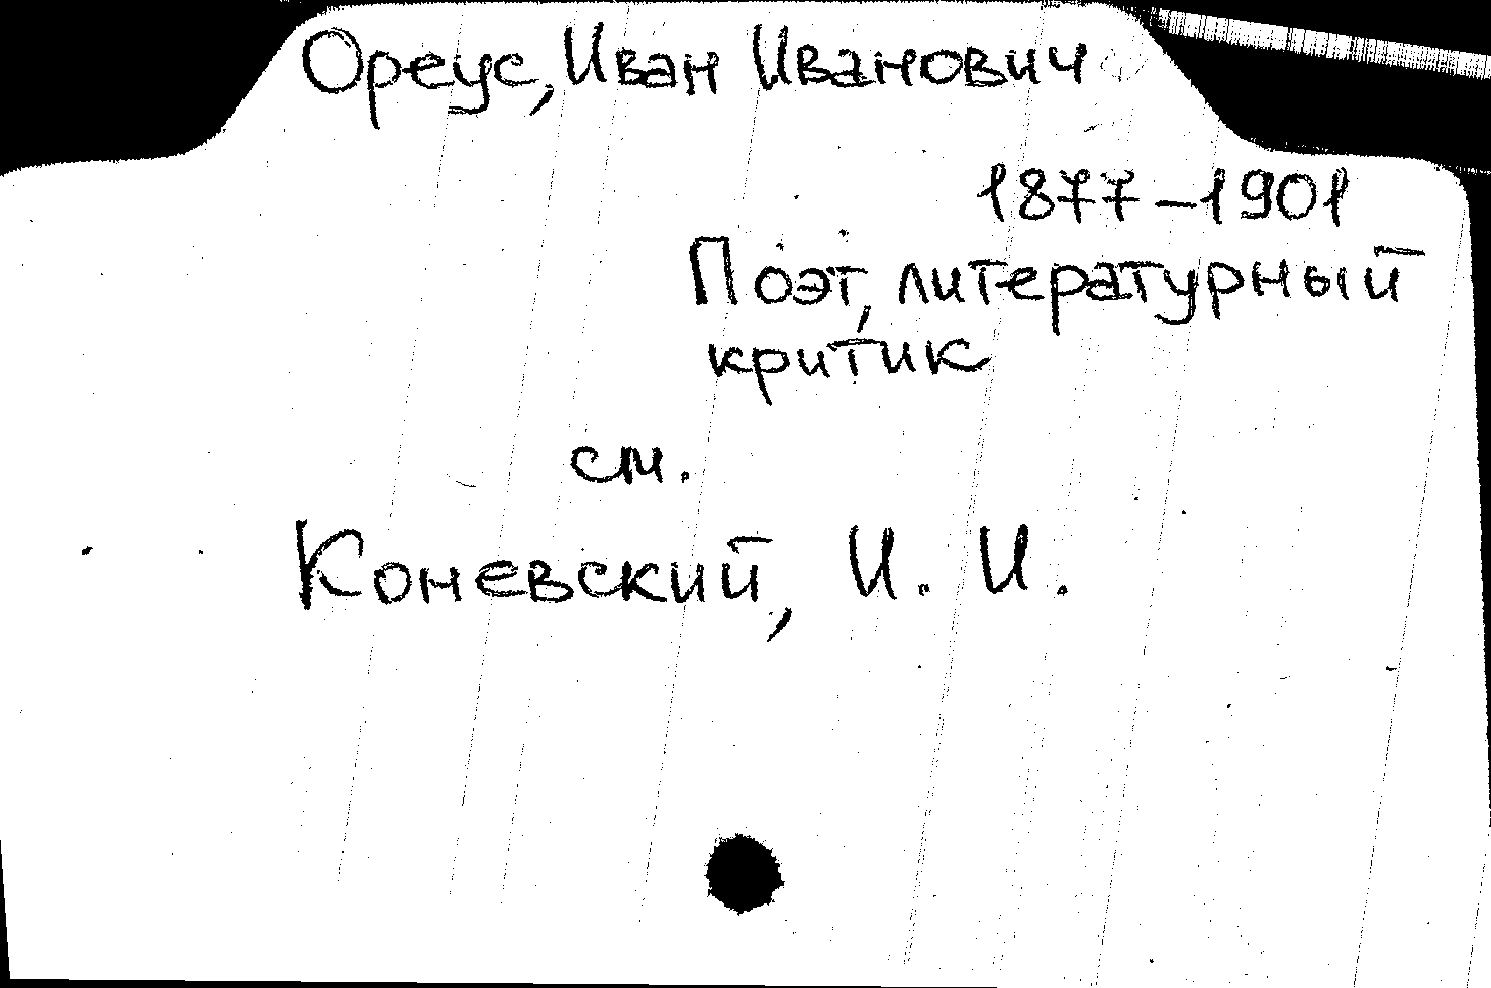 Ореус, Иван Иванович
1877–1901
Поэт, литературный
критик
см.
Коневский, И. И.